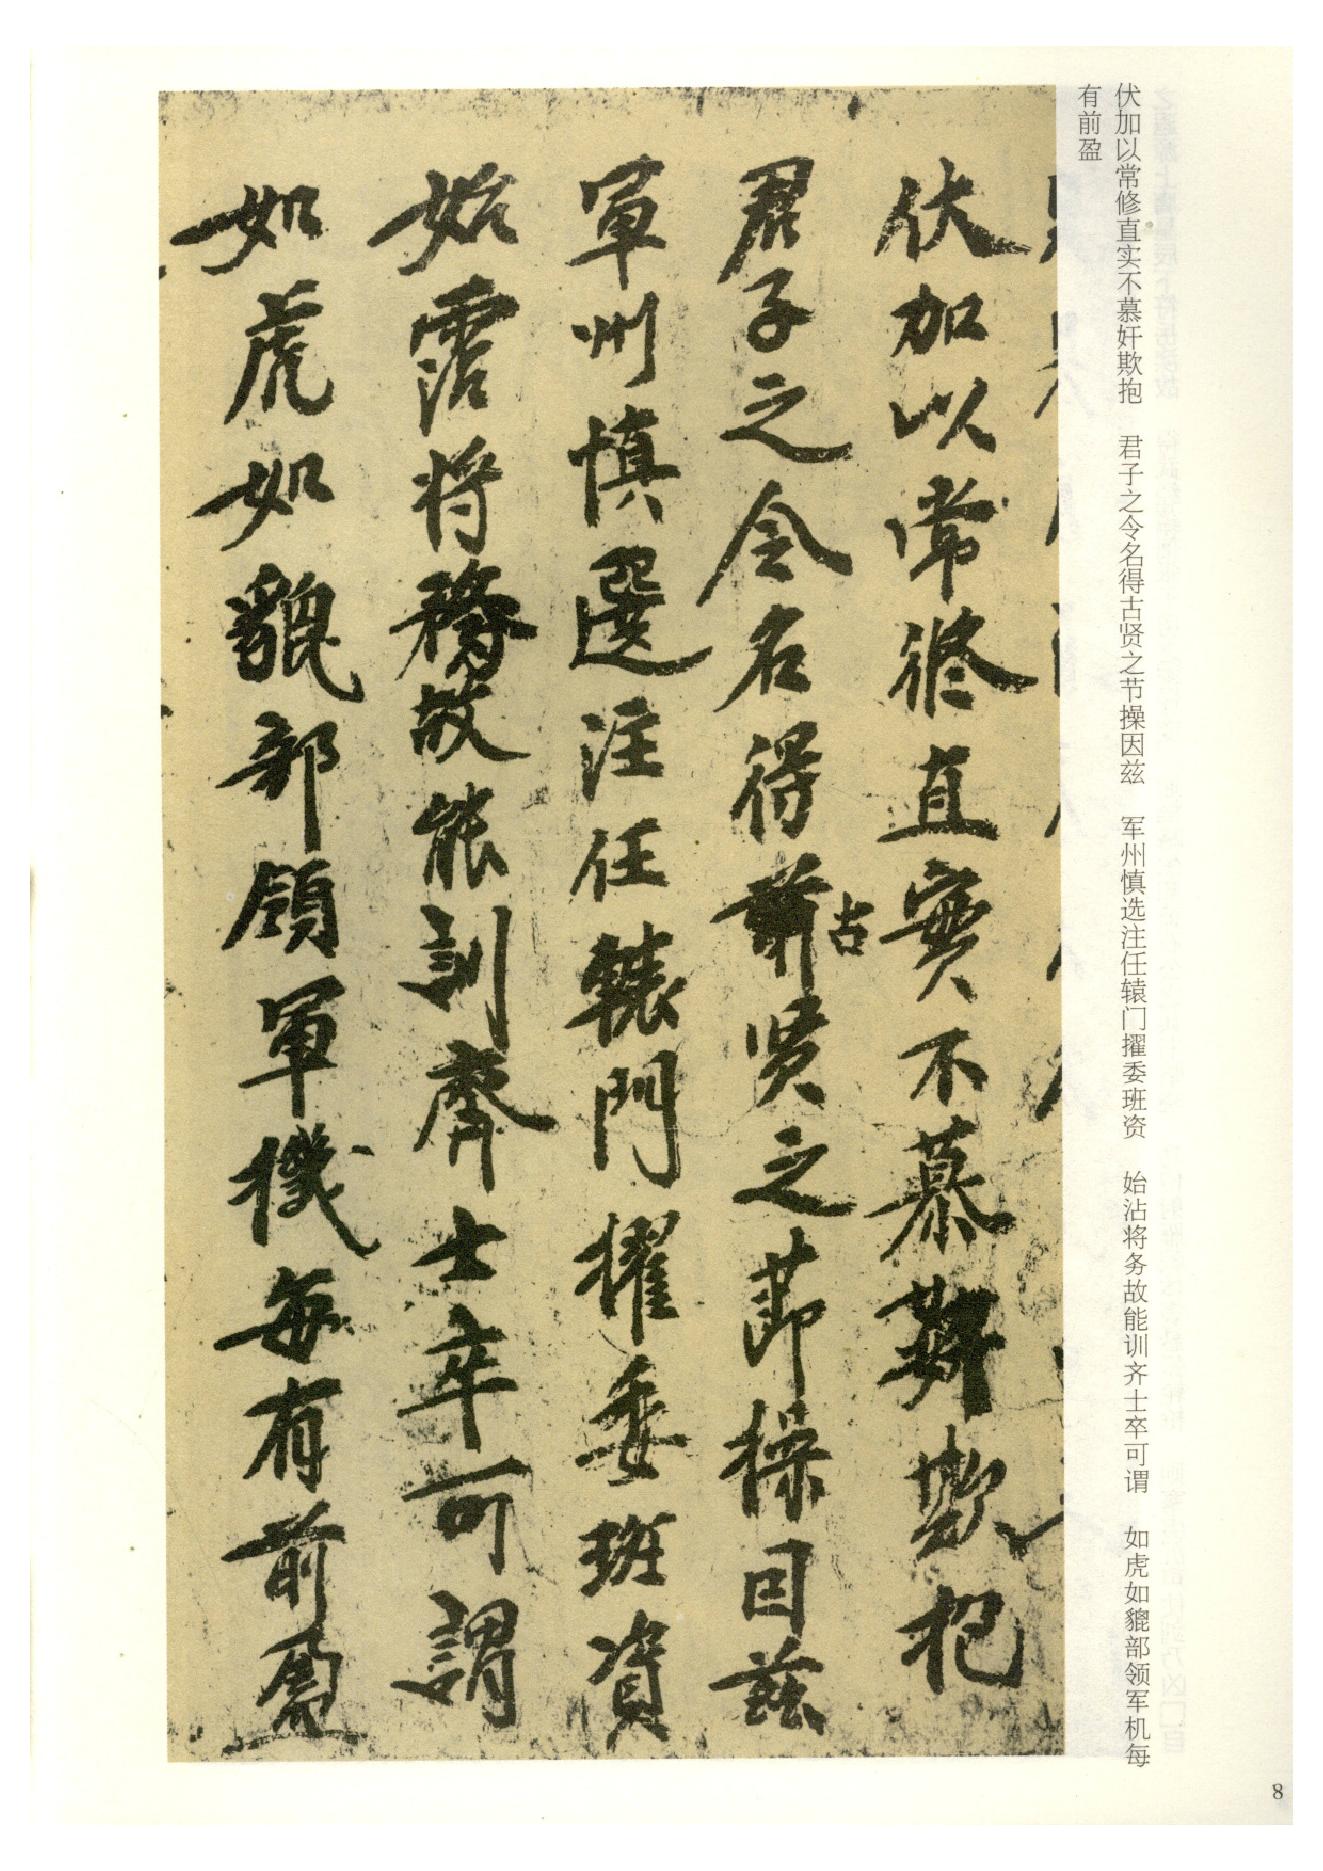 伏加以常修直实不慕奸欺抱　君子之令名得古贤之节操因兹　军州慎选注任辕门擢委班资　始沾将务故能训齐士卒可谓　如虎如貔部领军机每
有前盈
伏加以常修直實不慕奸欺抱
君子之令名得前古贤之節操因兹
軍州慎選注任轅門擢委班資
始霑将務故能訓齊士卒可謂
如虎如貔部領軍機每有前盈
8